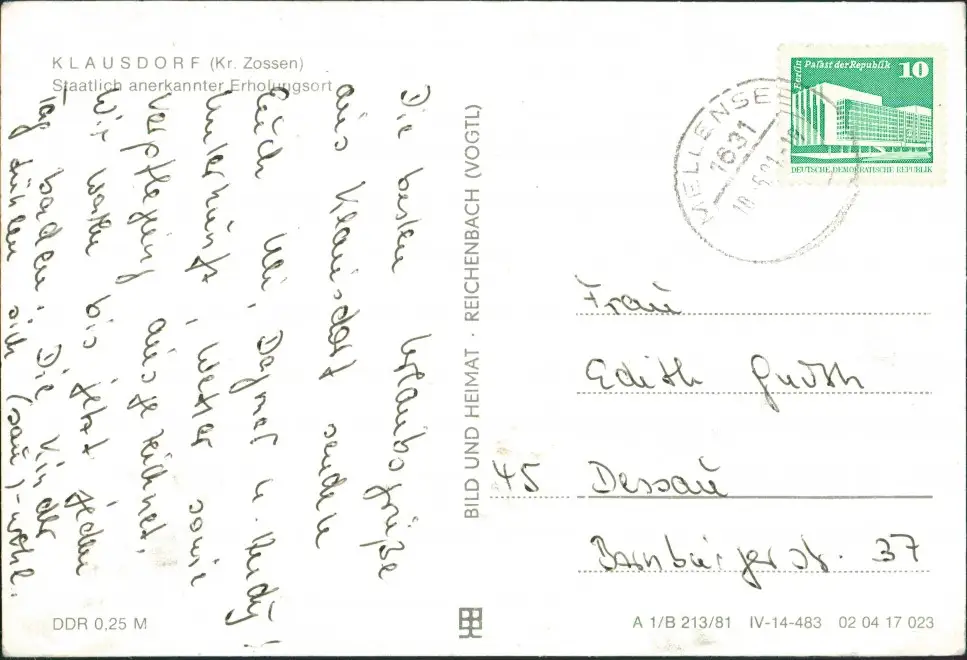 KLAUSDORF (Kr. Zossen)
Staatlich anerkannter Erholungsort
Die besten Urlaubsgrüße
aus Klausdorf senden
Euch Uli, Dagmar u. Andy!
Unterkunft, Wetter sowie
Verpflegung ausgezeichnet.
Wir waren bis jetzt jeden
Tag baden. Die Kinder
fühlen sich (sau)-wohl.
BILD UND HEIMAT · REICHENBACH (VOGTL)
Berlin Palast der Republik 10
DEUTSCHE DEMOKRATISCHE REPUBLIK
MELLENSEE
1631
Frau
Edith
45 Dessau
Bernburgerstr. 37
DDR 0,25 M
A 1/B 213/81 IV-14-483 02 04 17 023